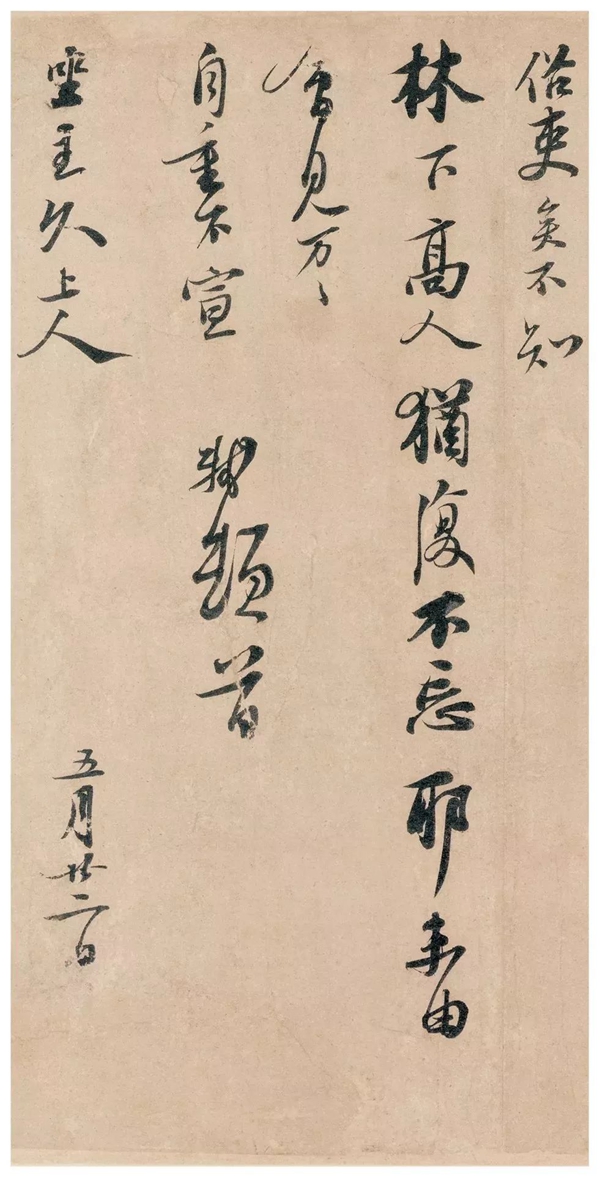 俗吏矣不知
林下高人猶復不忘耶未由
會見万〻
自重不宣 軾頓首
坐主久上人 五月廿二日